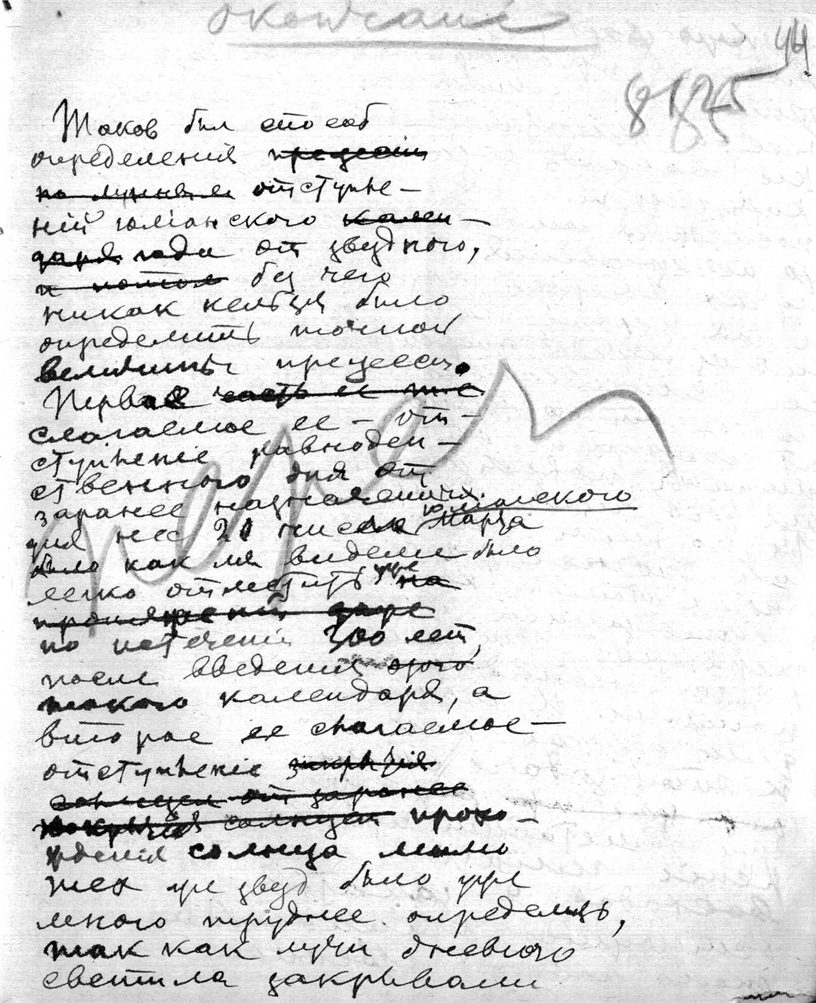 окончание
44
8125
Таков был способ
определения прецессии
по лунным отступле-
ний юлианского кален-
даря года от звездного,
и потом без чего
никак нельзя было
определить точной
величины прецессии.
Первая часть ее же
слагаемое ее – от-
ступление равноден-
ственного дня от
заранее назначенного
для нее 21 числа юлианского
Марта
было как мы видели было
легко отметить уже на
протяжении даже
по истечении 300 лет,
после введения этого
такого календаря, а
второе ее слагаемое –
отступление закрытия
солнцем от заранее
покрытия солнцем прохо-
ждения солнца мимо
тех же звезд было уже
много труднее определить,
так как лучи дневного
светила закрывали
перен